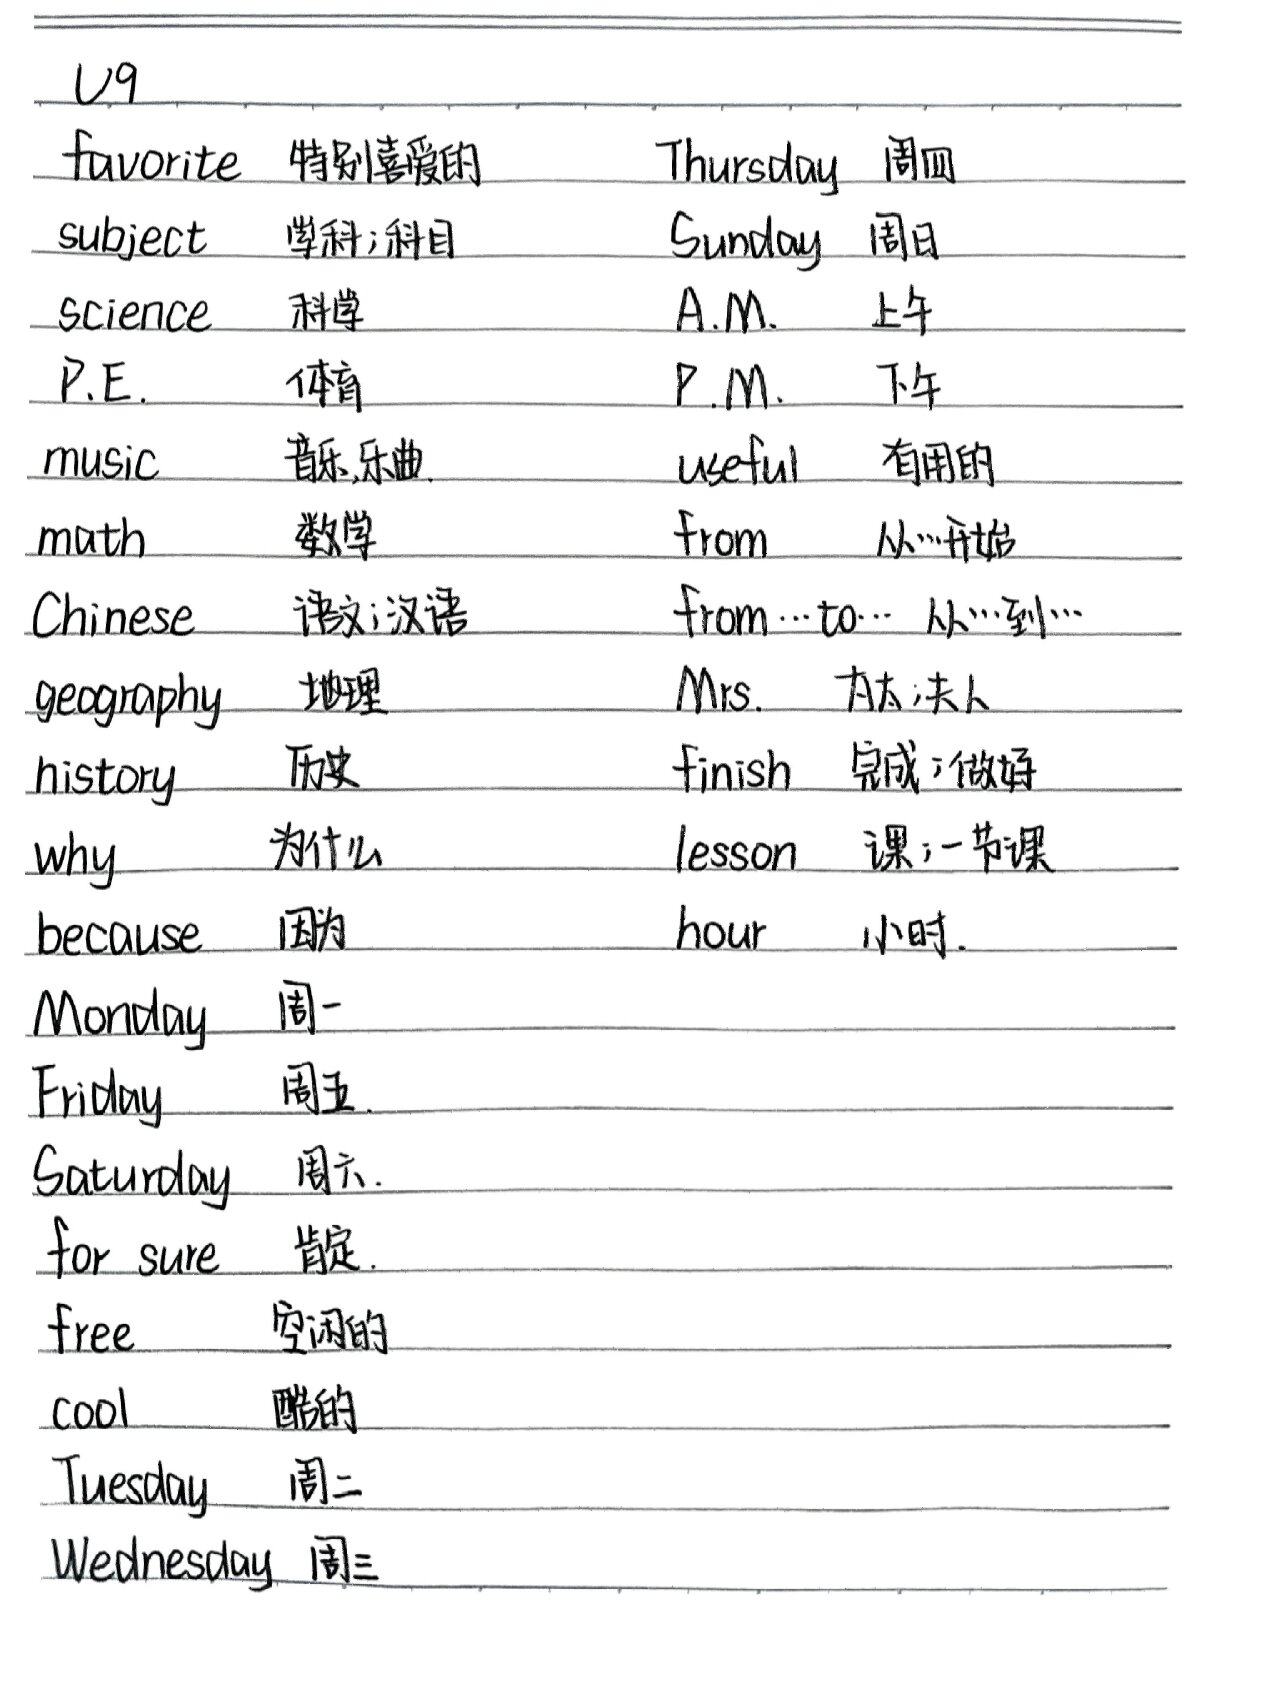 U9
favorite 特别喜爱的 Thursday 周四
subject 学科；科目 Sunday 周日
science 科学 A.M. 上午
P.E. 体育 P.M. 下午
music 音乐、乐曲. useful 有用的
math 数学 from 从…开始
Chinese 语文；汉语 from…to… 从…到…
geography 地理 Mrs. 太太；夫人
history 历史 finish 完成；做好
why 为什么 lesson 课；一节课
because 因为 hour 小时.
Monday 周一
Friday 周五.
Saturday 周六.
for sure 肯定.
free 空闲的
cool 酷的
Tuesday 周二
Wednesday 周三